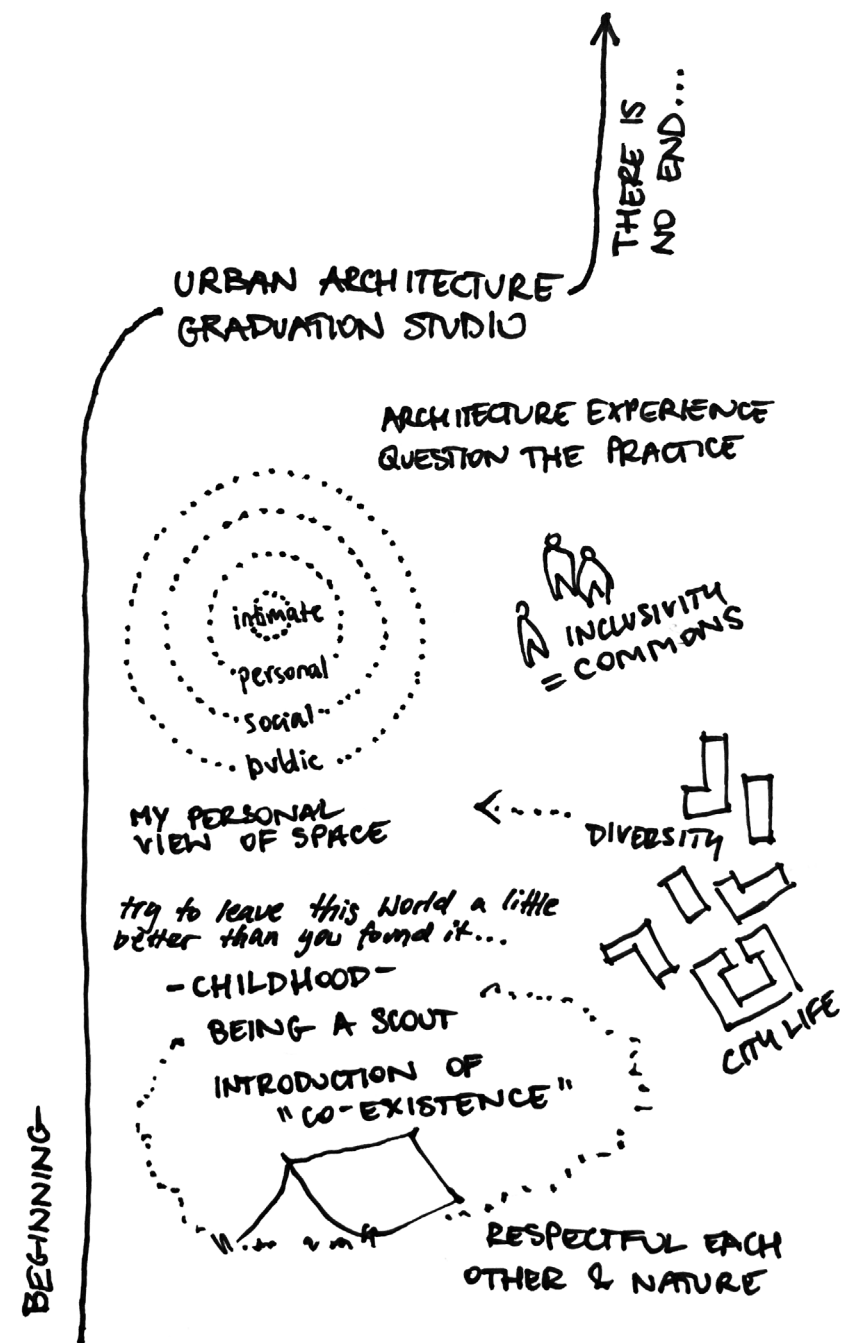 THERE IS
NO END...
URBAN ARCHITECTURE
GRADUATION STUDIO
ARCHITECTURE EXPERIENCE
QUESTION THE PRACTICE
intimate
personal
social
public
INCLUSIVITY
= COMMONS
MY PERSONAL
VIEW OF SPACE
DIVERSITY
try to leave this world a little
better than you found it...
CITY LIFE
- CHILDHOOD -
BEING A SCOUT
INTRODUCTION OF
"CO-EXISTENCE"
RESPECTFUL EACH
OTHER & NATURE
BEGINNING